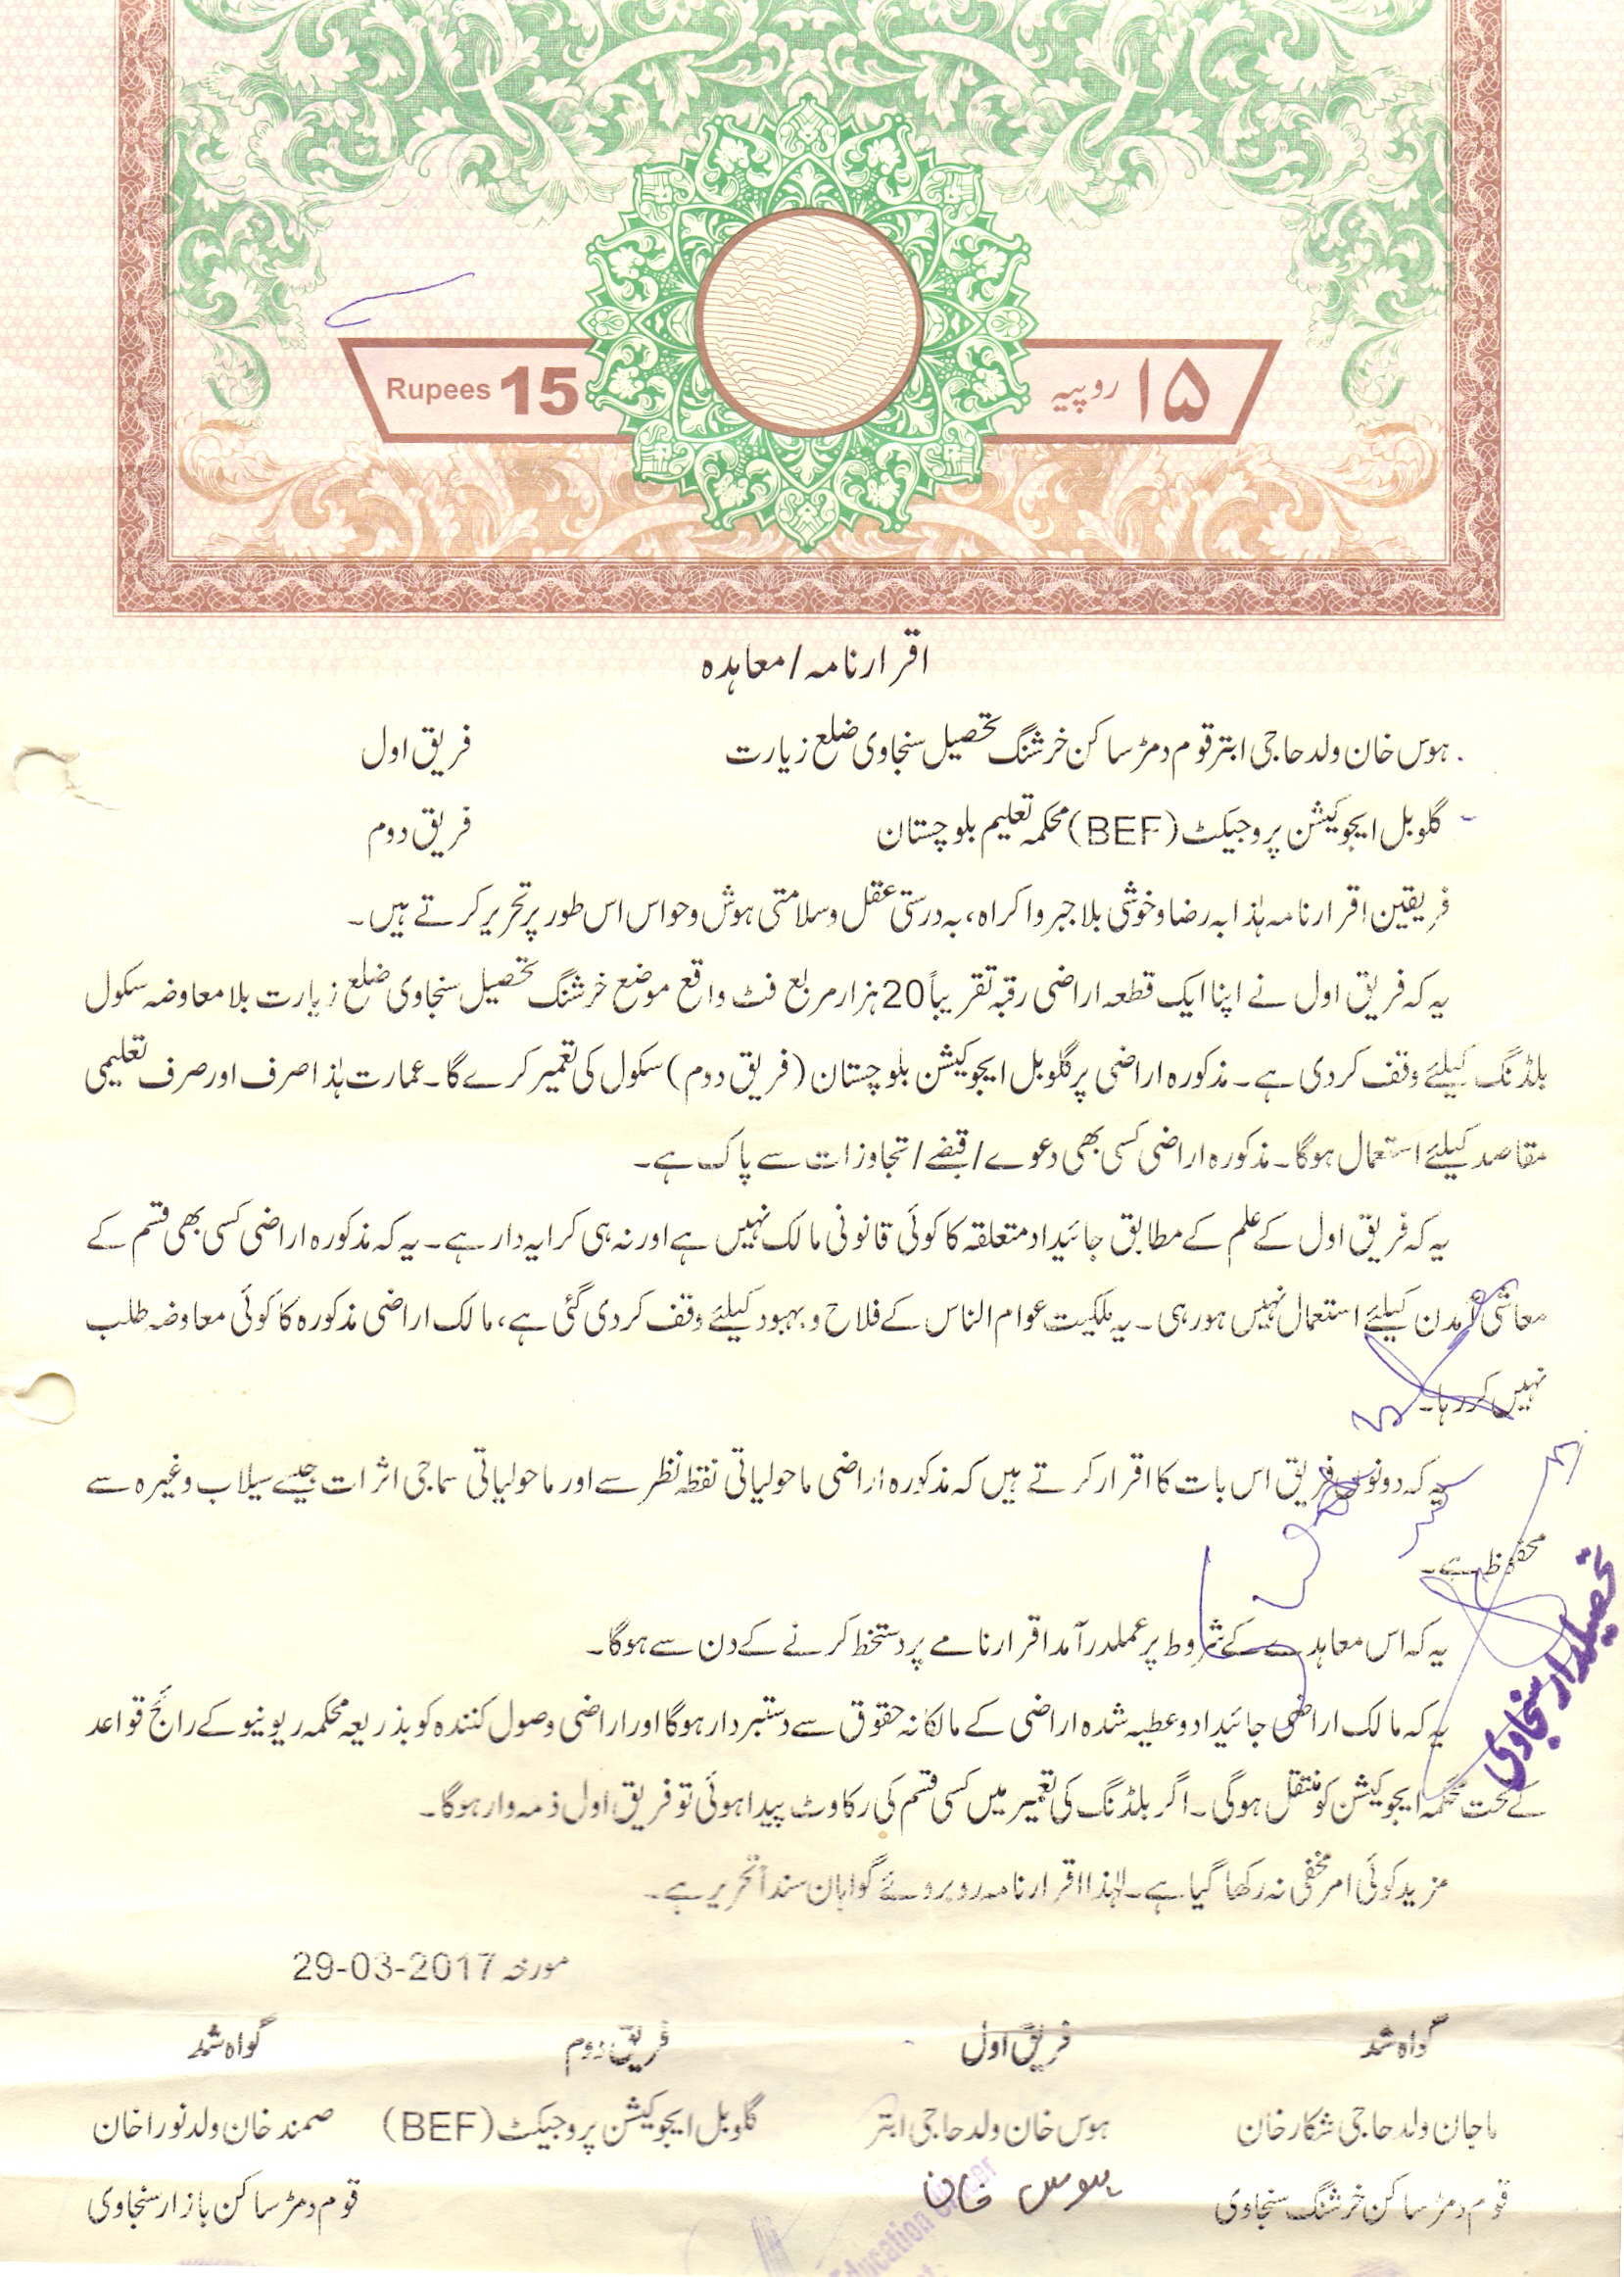 Rupees 15
۱۵ روپیہ
اقرار نامہ/معاہدہ
ہوس خان ولد حاجی ابتر قوم دمڑ ساکن خرشنگ تحصیل سنجاوی ضلع زیارت فریق اول
گلوبل ایجوکیشن پروجیکٹ (BEF) محکمہ تعلیم بلوچستان فریق دوم
فریقین اقرار نامہ ہٰذا بہ رضا و خوشی بلا جبر و اکراہ، بہ درستی عقل و سلامتی ہوش و حواس اس طور پر تحریر کرتے ہیں۔
یہ کہ فریق اول نے اپنا ایک قطعہ اراضی رقبہ تقریباً 20 ہزار مربع فٹ واقع موضع خرشنگ تحصیل سنجاوی ضلع زیارت بلا معاوضہ سکول
بلڈنگ کیلئے وقف کردی ہے۔ مذکورہ اراضی پر گلوبل ایجوکیشن بلوچستان (فریق دوم) سکول کی تعمیر کرے گا۔ عمارت ہٰذا صرف اور صرف تعلیمی
مقاصد کیلئے استعمال ہوگا۔ مذکورہ اراضی کسی بھی دعوے/قبضے/تجاوزات سے پاک ہے۔
یہ کہ فریق اول کے علم کے مطابق جائیداد متعلقہ کا کوئی قانونی مالک نہیں ہے اور نہ ہی کرایہ دار ہے۔ یہ کہ مذکورہ اراضی کسی بھی قسم کے
معاشی آمدن کیلئے استعمال نہیں ہورہی۔ یہ ملکیت عوام الناس کے فلاح و بہبود کیلئے وقف کردی گئی ہے، مالک اراضی مذکورہ کا کوئی معاوضہ طلب
نہیں کررہا۔
یہ کہ دونوں فریق اس بات کا اقرار کرتے ہیں کہ مذکورہ اراضی ماحولیاتی نقطہ نظر سے اور ماحولیاتی سماجی اثرات جیسے سیلاب وغیرہ سے
محفوظ ہے۔
یہ کہ اس معاہدے کے شروط پر عملدرآمد اقرار نامے پر دستخط کرنے کے دن سے ہوگا۔
یہ کہ مالک اراضی جائیداد و عطیہ شدہ اراضی کے مالکانہ حقوق سے دستبردار ہوگا اور اراضی وصول کنندہ کو بذریعہ محکمہ ریونیو کے رائج قواعد
کے تحت محکمہ ایجوکیشن کو منتقل ہوگی۔ اگر بلڈنگ کی تعمیر میں کسی قسم کی رکاوٹ پیدا ہوئی تو فریق اول ذمہ وار ہوگا۔
تحصیلدار سنجاوی
مزید کوئی امر مخفی نہ رکھا گیا ہے۔ لہٰذا اقرار نامہ روبروئے گواہان سنداً تحریر ہے۔
مورخہ 29-03-2017
گواہ شد فریق اول فریق دوم گواہ شد
ماجان ولد حاجی شکار خان ہوس خان ولد حاجی ابتر گلوبل ایجوکیشن پروجیکٹ (BEF) صمند خان ولد نورا خان
قوم دمڑ ساکن خرشنگ سنجاوی ہوس خان قوم دمڑ ساکن بازار سنجاوی
Education Officer